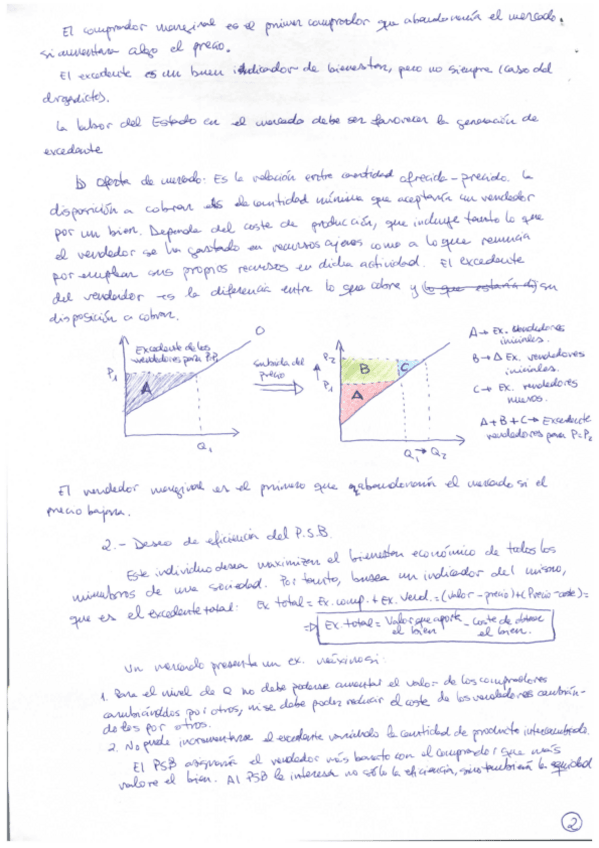 El comprador marginal es el primer comprador que abandonaría el mercado
si aumentara algo el precio.
El excedente es un buen indicador de bienestar, pero no siempre (caso del
drogadicto).
La labor del Estado en el mercado debe ser favorecer la generación de
excedente
b) Oferta de mercado: Es la relación entre cantidad ofrecida-precio. La
disposición a cobrar es la cantidad mínima que aceptaría un vendedor
por un bien. Depende del coste de producción, que incluye tanto lo que
el vendedor se ha gastado en recursos ajenos como a lo que renuncia
por emplear sus propios recursos en dicha actividad. El excedente
del vendedor es la diferencia entre lo que cobre y su
disposición a cobrar.
Excedente de los
vendedores para P=P1
O
P1
A
Q1
Subida del
precio
P2
P1
B
C
A
Q1 → Q2
A → Ex. vendedores
iniciales.
B → Δ Ex. vendedores
iniciales.
C → Ex. vendedores
nuevos.
A + B + C → Excedente
vendedores para P=P2
El vendedor marginal es el primero que abandonaría el mercado si el
precio bajara.
2.- Deseo de eficiencia del P.S.B.
Este individuo desea maximizar el bienestar económico de todos los
miembros de una sociedad. Por tanto, busca un indicador del mismo,
que es el excedente total: Ex total = Ex. comp. + Ex. vend. = (valor - precio) + (Precio - coste) =
⇒ Ex. total = Valor que aporta el bien - coste de obtener el bien.
Un mercado presenta un ex. máximo si:
1. Para el nivel de Q no debe poderse aumentar el valor de los compradores
cambiándolos por otros, ni se debe poder reducir el coste de los vendedores cambián-
dolos por otros.
2. No puede incrementarse el excedente variando la cantidad de producto intercambiado.
El PSB asignaría el vendedor más barato con el comprador que más
valore el bien. Al PSB le interesa no sólo la eficiencia, sino también la equidad
2